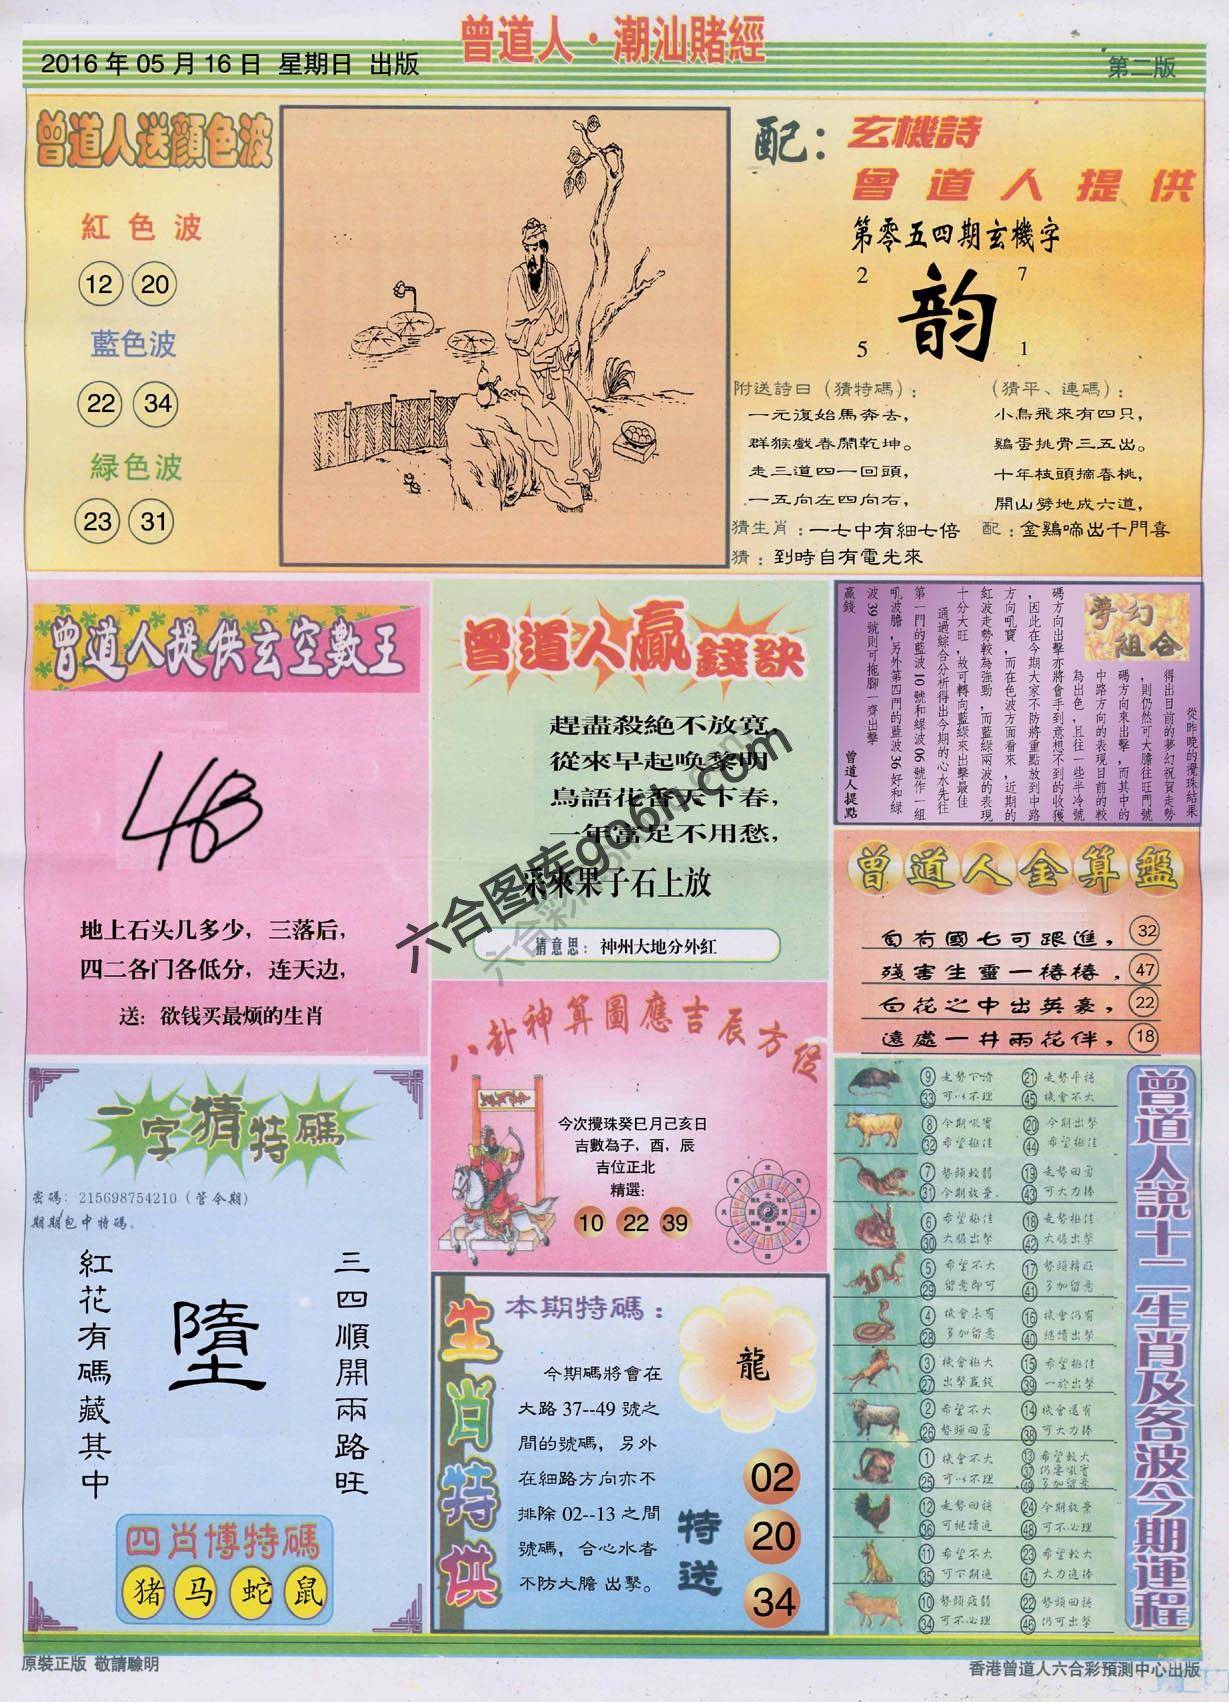 曾道人·潮汕賭經
2016年05月16日 星期日 出版
第二版
曾道人送顏色波
紅色波
12 20
藍色波
22 34
緑色波
23 31
配：玄機詩
曾道人提供
第零五四期玄機字
2 7
韵
5 1
附送詩曰（猜特碼）：
一元復始馬奔去，
群猴戲春鬧乾坤。
走三道四一回頭，
一五向左四向右，
（猜平、連碼）：
小鳥飛來有四只，
鷄蛋挑骨三五出。
十年枝頭摘春桃，
開山劈地成六道，
猜生肖：一七中有細七倍
配：金鷄啼出千門喜
猜：到時自有電光來
曾道人提供玄空數王
地上石头几多少，三落后，
四二各门各低分，连天边，
送：欲钱买最烦的生肖
曾道人贏錢訣
趕盡殺絕不放寬，
從來早起唤黎明
鳥語花香天下春，
一年富足不用愁，
采來果子石上放
猜意思：神州大地分外紅
夢幻組合
從昨晚的攪珠結果
得出目前的夢幻祝賀走勢
，則仍然可大膽往旺門號
碼方向來出擊，而其中的
中路方向的表現目前的較
為出色，且往一些半冷號
碼方向出擊亦將會手到意想不到的收獲
，因此在今期大家不防將重點放到中路
方向吼寶，而在色波方面看來，近期的
紅波走勢較為強勁，而藍綠兩波的表現
十分大旺，故可轉向藍綠來出擊最佳
通過綜合分析得出今期的心水先往
第一門的藍波10號和緑波06號作一組
吼波膽，另外第四門的藍波36好和緑
波39號則可拖腳一齊出擊
贏錢
曾道人提點
曾道人金算盤
自有國七可跟進， 32
殘害生靈一樁樁， 47
百花之中出英豪， 22
遠處一井兩花伴， 18
八卦神算圖應吉辰方位
今次攪珠癸巳月己亥日
吉數為子，酉，辰
吉位正北
精選:
10 22 39
一字猜特碼
密碼：215698754210（管令期）
期期包中特碼。
三四順開兩路旺
墮
紅花有碼藏其中
四肖博特碼
猪 马 蛇 鼠
生肖特供
本期特碼：
龍
今期碼將會在
大路37--49號之
間的號碼，另外
在細路方向亦不
排除02--13之間
號碼，合心水者
不防大膽 出擊。
特送
02
20
34
曾道人説十二生肖及各波今期運程
9 走勢下滑 21 走勢平穩
33 可以不理 45 機會不大
8 今期吼實 20 今期出擊
32 希望極佳 44 希望極佳
7 勢頭較弱 19 走勢回勇
31 今期放棄. 43 可大力捧
6 希望極佳 18 走勢極佳
30 大膽出擊 42 大膽出擊
5 希望不大 17 勢頭轉旺
29 留意即可 41 多加留意
4 機會未有 16 機會仍有
28 多加留意 40 繼續出擊
3 機會極大 15 希望極佳
27 出擊贏錢 39 一於出擊
2 希望不大 14 機會還有
26 勢頭回勇 38 可大力捧
1 機會不大 13 希望較大
25 可以不理 37 仍要吼實
49 多加留意
12 走勢回穩 24 今期放棄
36 可繼續進 48 可不必理
11 希望不大 23 希望較大
35 可下期進 47 大力進捧
10 勢頭疲弱 22 勢頭回穩
34 可不必理 46 仍可出擊
原裝正版 敬請驗明
香港曾道人六合彩預測中心出版
六合图库go6h.com